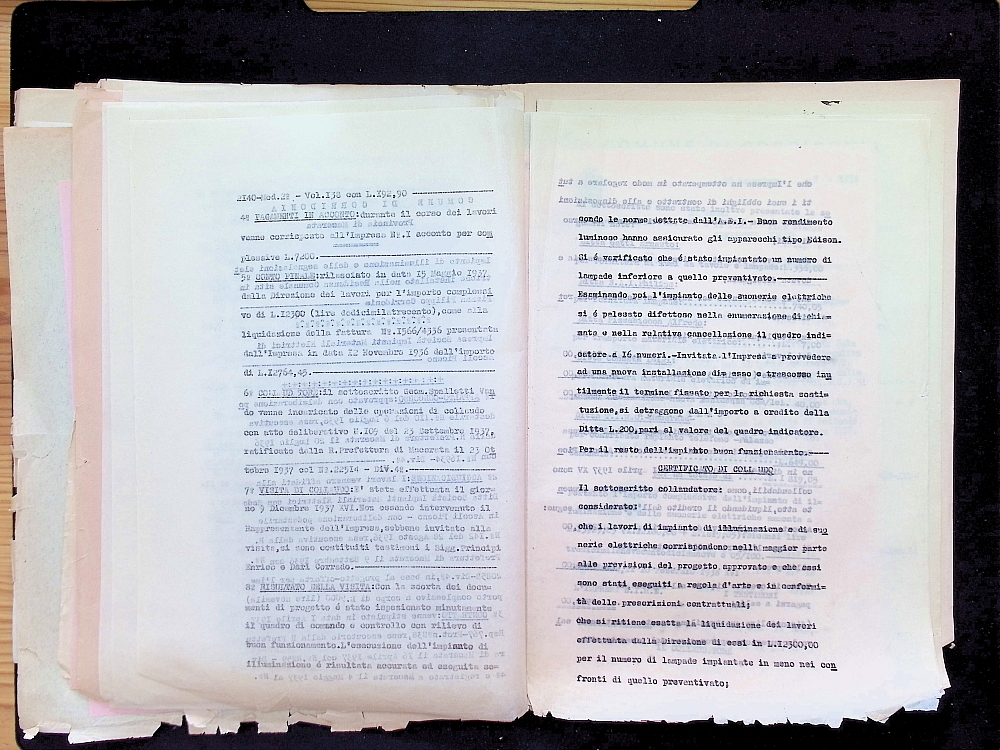 2140-Mod.22 - Vol.I38 con L.I92,90
4º PAGAMENTI IN ACCONTO:durante il corso dei lavori
venne corrisposto all'Impresa Nº.I acconto per com
plessive L.7200.
5º CONTO FINALE:rilasciato in data 15 Maggio 1937
dalla Direzione dei lavori per l'importo complessi
vo di L.I2300 (lire dodicimilatrecento),come alla
liquidazione della fattura Nº.I566/4336 presentata
dall'Impresa in data 22 Novembre 1936 dell'importo
di L.I2764,45.
6º COLLAUDATORE:il sottoscritto Geom.Spalletti Van
do venne incaricato delle operazioni di collaudo
con atto deliberativo N.I09 del 23 Settembre 1937,
ratificato dalla R.Prefettura di Macerata il 23 Ot
tobre 1937 col Nº.22514 - Div.4ª.
7º VISITA DI COLLAUDO:E' stata effettuata il gior-
no 9 Dicembre 1937 XVI.Non essendo intervenuto il
Rappresentante dell'Impresa,sebbene invitato alla
visita,si sono costituiti testimoni i Sigg.Principi
Enrico e Bari Corrado.
8º RISULTATO DELLA VISITA:Con la scorta dei docu-
menti di progetto é stato ispezionato minutamente
il quadro di comando e controllo con rilievo di
buon funzionamento.L'esecuzione dell'impianto di
illuminazione é risultata accurata ed eseguita se-
condo le norme dettate dall'A.E.I.- Buon rendimento
luminoso hanno assicurato gli apparecchi tipo Edison.
Si é verificato che é stato impiantato un numero di
lampade inferiore a quello preventivato.
Esaminando poi l'impianto delle suonerie elettriche
si é palesato difettoso nella enumerazione di chia-
mate e nella relativa cancellazione il quadro indi-
catore a 16 numeri.-Invitata l'Impresa a provvedere
ad una nuova installazione di esso e trascorso inu
tilmente il termine fissato per la richiesta sosti-
tuzione,si detraggono dall'importo a credito della
Ditta L.200,pari al valore del quadro indicatore.
Per il resto dell'impianto buon funzionamento.
CERTIFICATO DI COLLAUDO
Il sottoscritto collaudatore:
considerato:
che i lavori di impianto di illuminazione e di suo
nerie elettriche corrispondono nella maggior parte
alle previsioni del progetto approvato e che essi
sono stati eseguiti a regola d'arte e in conformi-
tà delle prescrizioni contrattuali;
che si ritiene esatta la liquidazione dei lavori
effettuata dalla Direzione di essi in L.I2300,00
per il numero di lampade impiantate in meno nei con
fronti di quello preventivato;